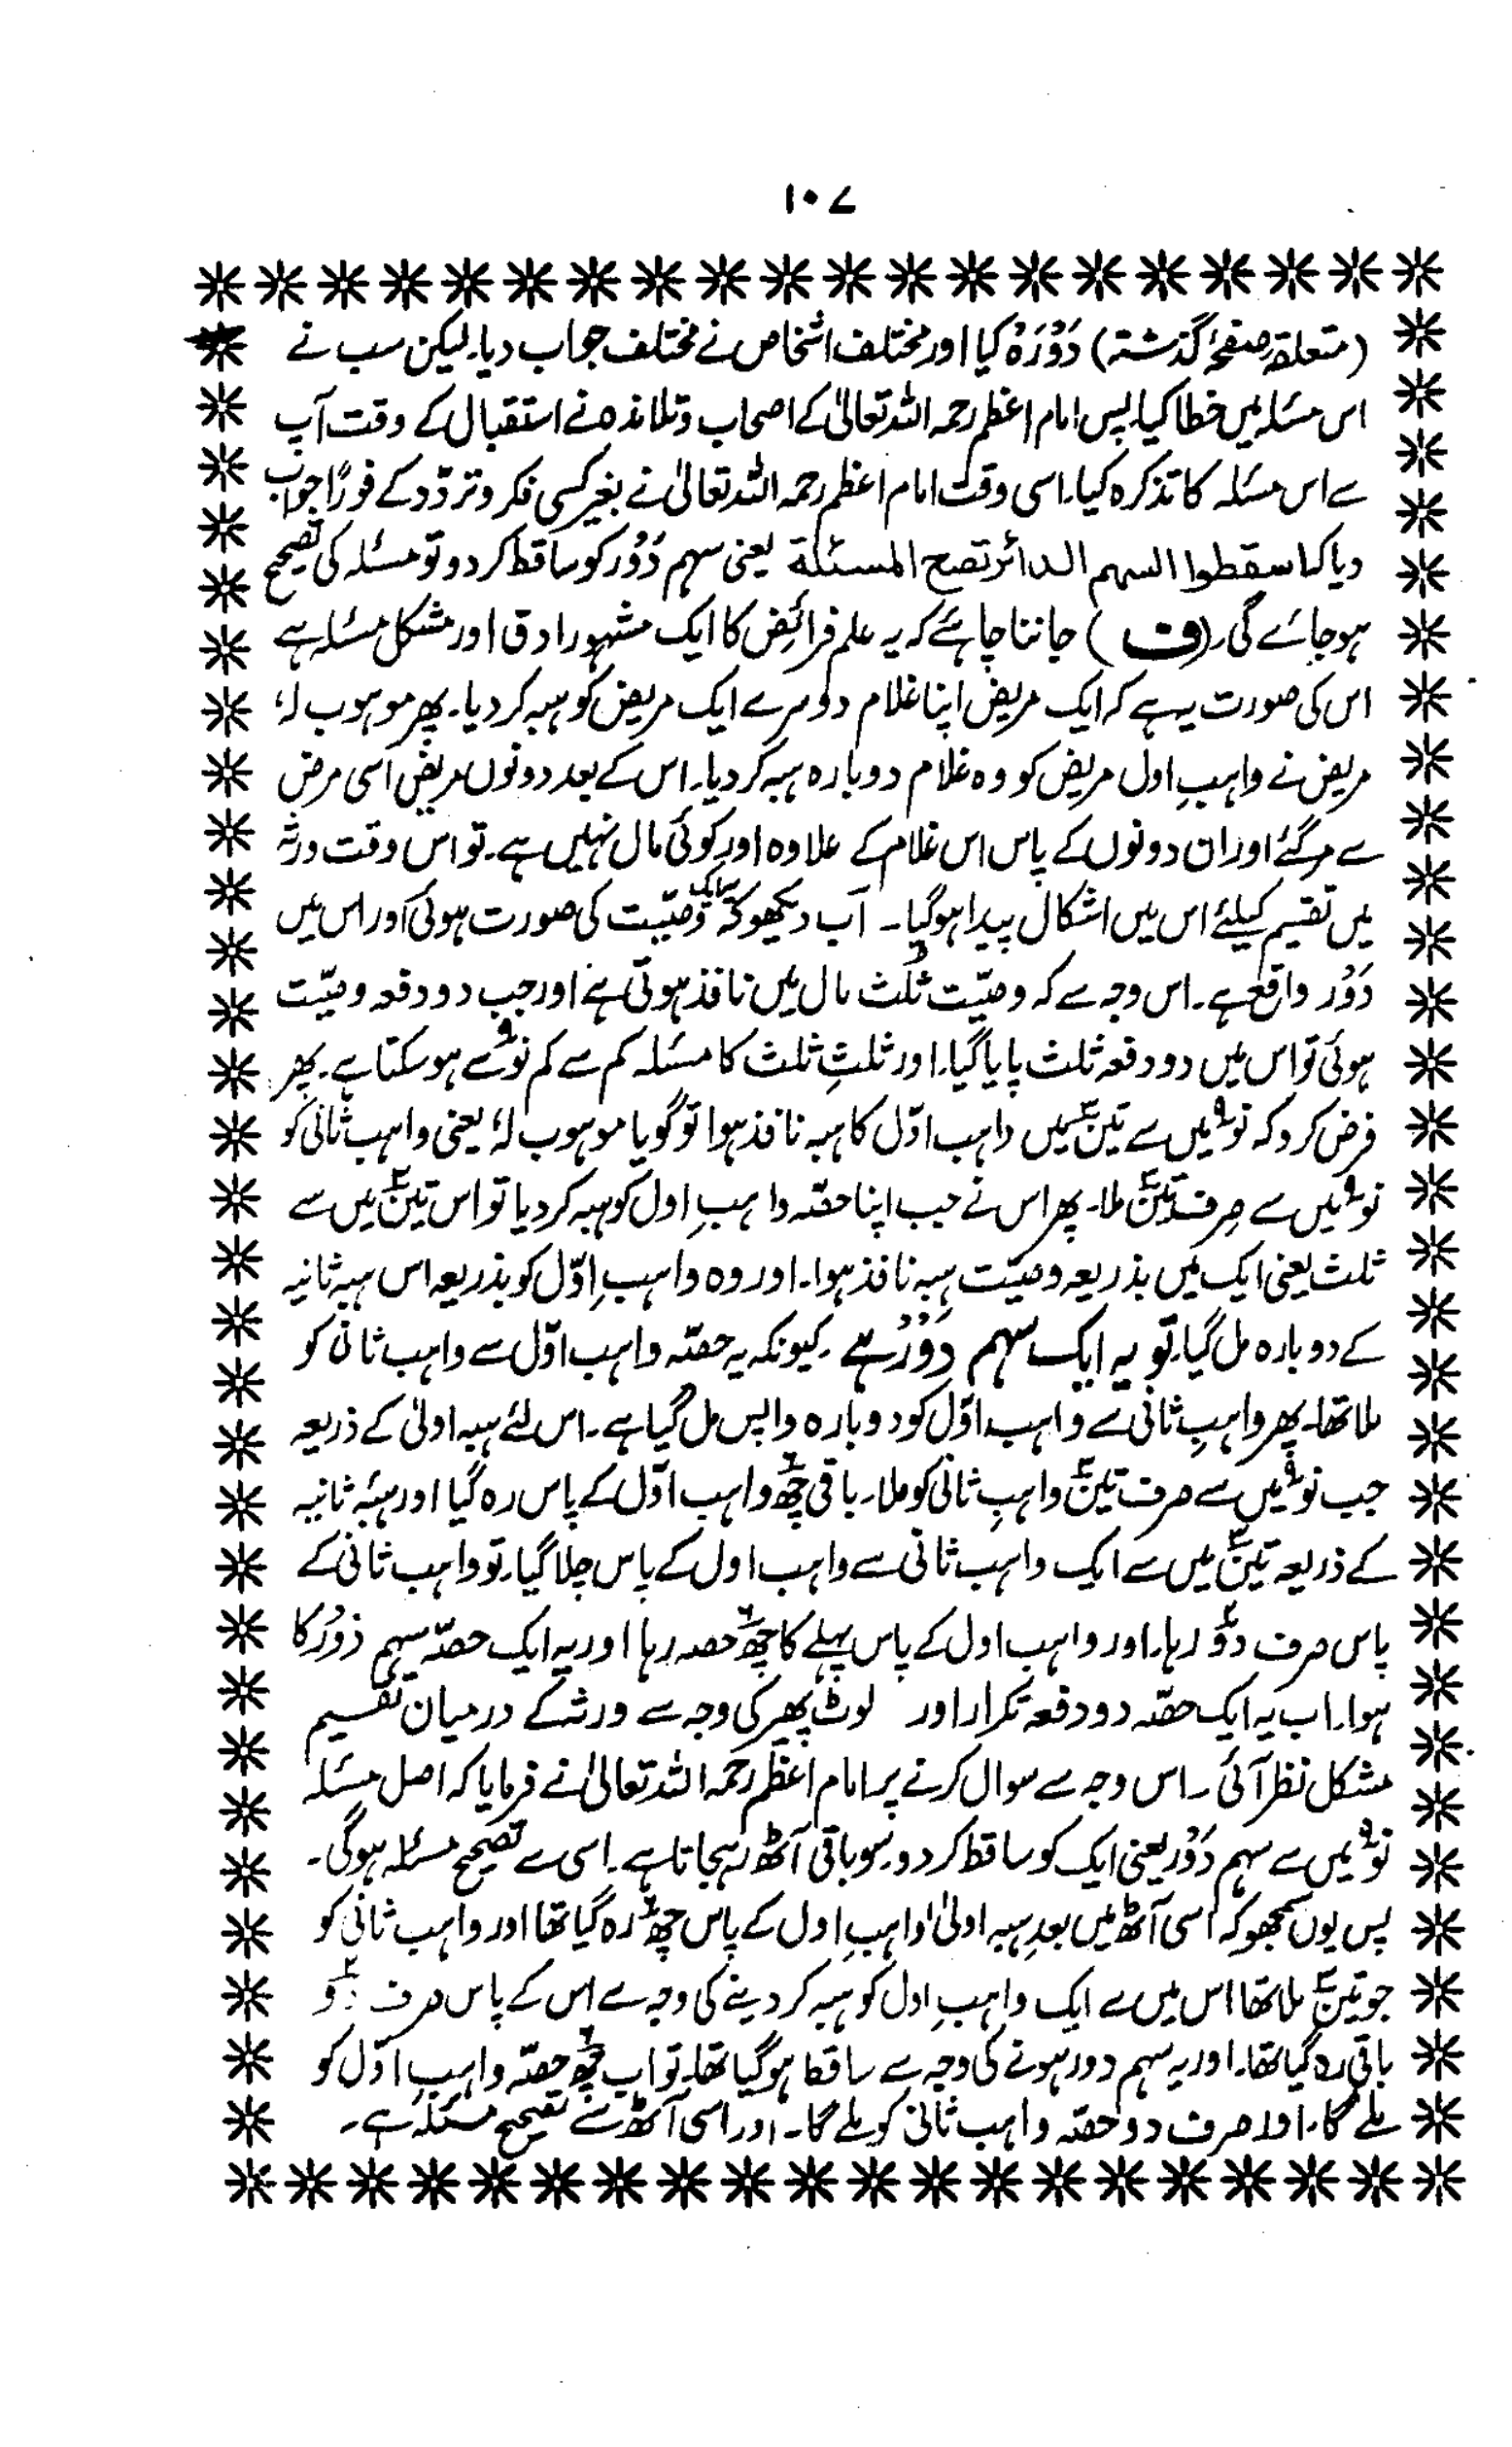 ۱۰۷
(متعلقہ صفحۂ گذشتہ) دَوْرَہْ کیا اور مختلف اشخاص نے مختلف جواب دیا۔ لیکن سب نے
اس مسئلہ میں خطا کیا۔ پس امام اعظم رحمہ اللہ تعالیٰ کے اصحاب و تلامذہ نے استقبال کے وقت آپ
سے اس مسئلہ کا تذکرہ کیا۔ اسی وقت امام اعظم رحمہ اللہ تعالیٰ نے بغیر کسی فکر و تردّد کے فورًا جواب
دیا کہ اسقطوا السهم الدائر تصح المسئلة یعنی سہم دَوْر کو ساقط کر دو تو مسئلہ کی تصحیح
ہو جائے گی۔ (ف) جاننا چاہئے کہ یہ علم فرائض کا ایک مشہور ادق اور مشکل مسئلہ ہے
اس کی صورت یہ ہے کہ ایک مریض اپنا غلام دوسرے ایک مریض کو ہبہ کر دیا۔ پھر موہوب لہٗ
مریض نے واہبِ اول مریض کو وہ غلام دوبارہ ہبہ کر دیا۔ اس کے بعد دونوں مریض اسی مرض
سے مر گئے اور ان دونوں کے پاس اس غلام کے علاوہ اور کوئی مال نہیں ہے۔ تو اس وقت ورثہ
میں تقسیم کیلئے اس میں اشکال پیدا ہو گیا۔ اَب دیکھو کہ یہاں وصیّت کی صورت ہوئی اور اس میں
دَوْر واقع ہے۔ اس وجہ سے کہ وصیّت ثُلُث مال میں نافذ ہوتی ہے اور جب دو دفعہ وصیّت
ہوئی تو اس میں دو دفعہ ثلث پایا گیا۔ اور ثلثِ ثلث کا مسئلہ کم سے کم نو۹ سے ہو سکتا ہے۔ پھر
فرض کرو کہ نو۹ میں سے تین۳ میں واہب اوّل کا ہبہ نافذ ہوا تو گویا موہوب لہٗ یعنی واہب ثانی کو
نو۹ میں سے صِرف تین۳ ملا۔ پھر اس نے جب اپنا حصّہ واہبِ اول کو ہبہ کر دیا تو اس تین۳ میں سے
ثلث یعنی ایک میں بذریعہ وصیّت ہبہ نافذ ہوا۔ اور وہ واہبِ اوّل کو بذریعہ اس ہبہ ثانیہ
کے دوبارہ مل گیا۔ تو یہ ایک سہم دَوْر ہے۔ کیونکہ یہ حصّہ واہب اوّل سے واہب ثانی کو
ملا تھا۔ پھر واہبِ ثانی سے واہب اوّل کو دوبارہ واپس مل گیا ہے۔ اس لئے ہبہ اولیٰ کے ذریعہ
جب نو۹ میں سے صرف تین۳ واہبِ ثانی کو ملا۔ باقی چھ۶ واہب اوّل کے پاس رہ گیا اور ہبۂ ثانیہ
کے ذریعہ تین۳ میں سے ایک واہب ثانی سے واہب اول کے پاس چلا گیا۔ تو واہب ثانی کے
پاس صرف دو۲ رہا۔ اور واہب اول کے پاس پہلے کا چھ۶ حصہ رہا اور یہ ایک حصّہ سہم دَوْر کا
ہوا۔ اب یہ ایک حصّہ دو دفعہ تکرار اور لوٹ پھیر کی وجہ سے ورثہ کے درمیان تقسیم
مشکل نظر آئی۔ اس وجہ سے سوال کرنے پر امام اعظم رحمہ اللہ تعالیٰ نے فرمایا کہ اصل مسئلہ
نو۹ میں سے سہم دَوْر یعنی ایک کو ساقط کر دو۔ سو باقی آٹھ رہجاتا ہے۔ اسی سے تصحیح مسئلہ ہوگی۔
پس یوں سمجھو کہ اسی آٹھ میں بعدِ ہبہ اولیٰ واہبِ اول کے پاس چھ۶ رہ گیا تھا اور واہب ثانی کو
جو تین۳ ملا تھا اس میں سے ایک واہبِ اول کو ہبہ کر دینے کی وجہ سے اس کے پاس صرف دو۲
باقی رہ گیا تھا۔ اور یہ سہم دور ہونے کی وجہ سے ساقط ہو گیا تھا۔ تو اب چھ۶ حصّہ واہبِ اوّل کو
ملے گا۔ اور صرف دو حصّہ واہب ثانی کو ملے گا۔ اور اسی آٹھ سے تصحیح مسئلہ ہے۔